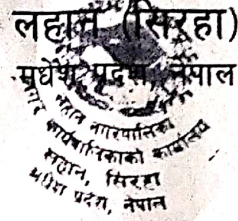 लहान (सिरहा)
मधेश प्रदेश, नेपाल
लहान नगरपालिका
नगर कार्यपालिकाको कार्यालय
लहान, सिरहा
मधेश प्रदेश, नेपाल